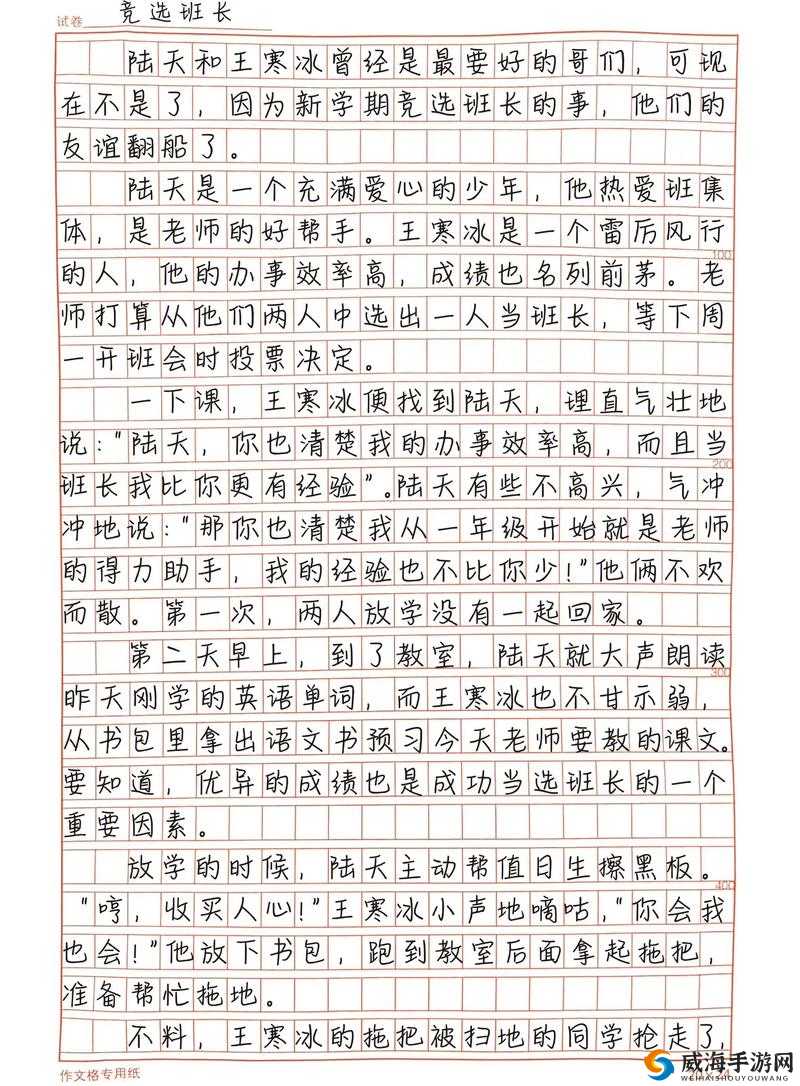 试卷 竞选班长
陆天和王寒冰曾经是最要好的哥们，可现
在不是了，因为新学期竞选班长的事，他们的
友谊翻船了。
陆天是一个充满爱心的少年，他热爱班集
体，是老师的好帮手。王寒冰是一个雷厉风行
100
的人，他的办事效率高，成绩也名列前茅。老
师打算从他们两人中选出一人当班长，等下周
一开班会时投票决定。
一下课，王寒冰便找到陆天，理直气壮地
说："陆天，你也清楚我的办事效率高，而且当
200
班长我比你更有经验"。陆天有些不高兴，气冲
冲地说："那你也清楚我从一年级开始就是老师
的得力助手，我的经验也不比你少！"他俩不欢
而散。第一次，两人放学没有一起回家。
第二天早上，到了教室，陆天就大声朗读
300
昨天刚学的英语单词，而王寒冰也不甘示弱，
从书包里拿出语文书预习今天老师要教的课文。
要知道，优异的成绩也是成功当选班长的一个
重要因素。
放学的时候，陆天主动帮值日生擦黑板。
400
"哼，收买人心！"王寒冰小声地嘀咕，"你会我
也会！"他放下书包，跑到教室后面拿起拖把，
准备帮忙拖地。
不料，王寒冰的拖把被扫地的同学抢走了，
作文格专用纸
威海手游网
WEIHAISHOUYOUWANG